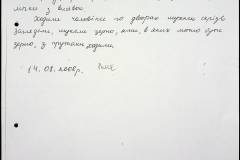 ями з вилами.
Ходили чоловіки по дворах шукали скрізь
заходили, шукали зерно, ями, в яких могло бути
зерно, з прутами ходили.
14.08.2008р.